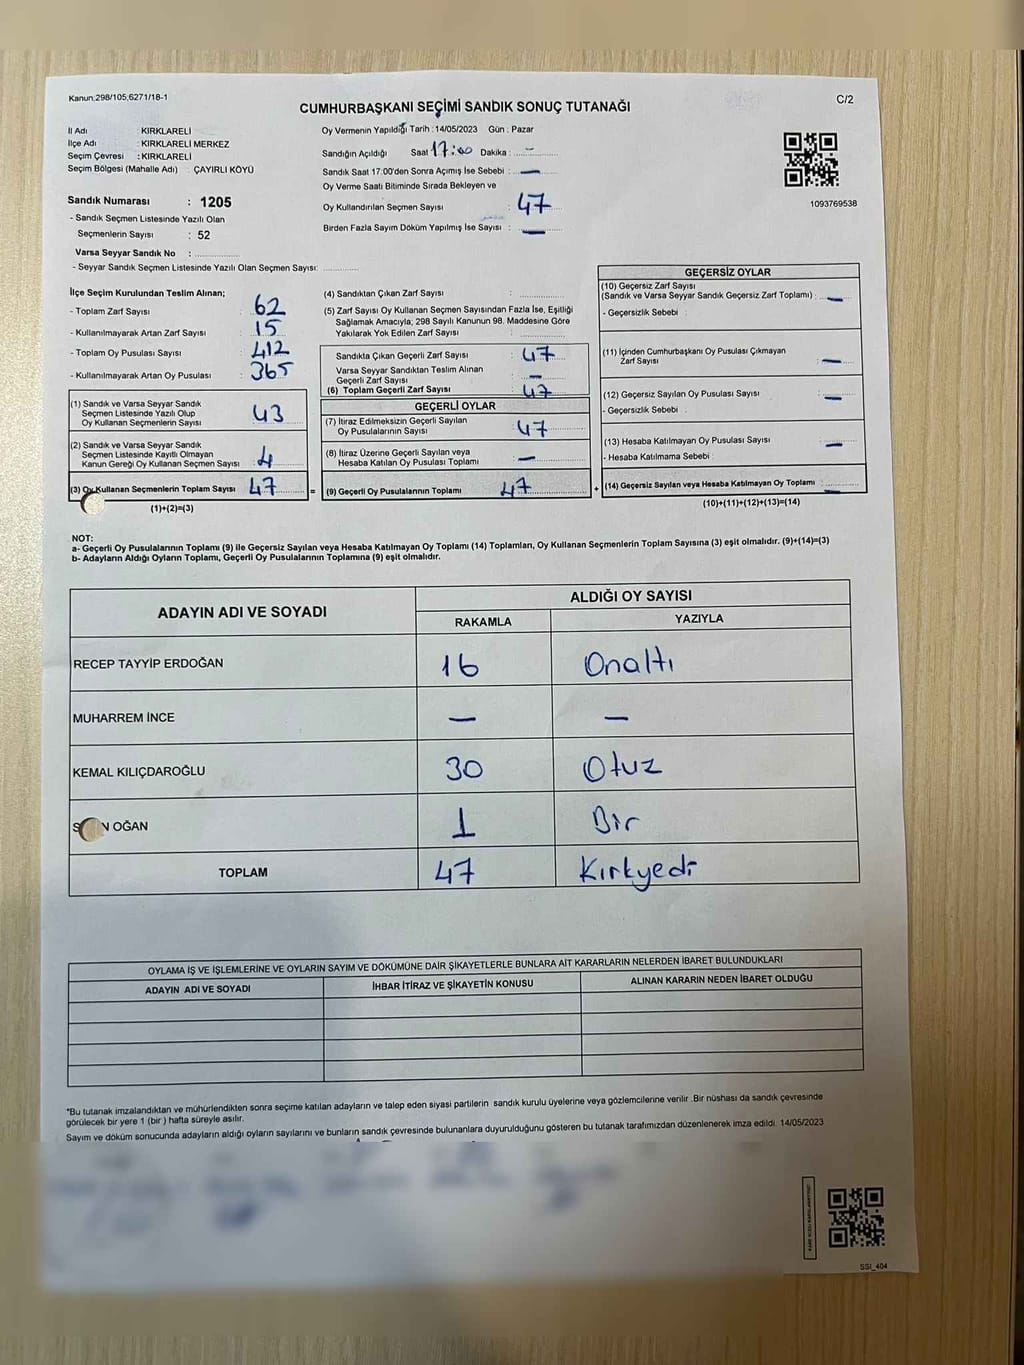 Kanun:298/105,6271/18-1
C/2
CUMHURBAŞKANI SEÇİMİ SANDIK SONUÇ TUTANAĞI
İl Adı KIRKLARELİ
İlçe Adı : KIRKLARELİ MERKEZ
Seçim Çevresi : KIRKLARELİ
Seçim Bölgesi (Mahalle Adı) : ÇAYIRLI KÖYÜ
Sandık Numarası : 1205
- Sandık Seçmen Listesinde Yazılı Olan
Seçmenlerin Sayısı : 52
Varsa Seyyar Sandık No :
- Seyyar Sandık Seçmen Listesinde Yazılı Olan Seçmen Sayısı:
Oy Vermenin Yapıldığı Tarih :14/05/2023 Gün : Pazar
Sandığın Açıldığı Saat 17:00 Dakika : –
Sandık Saat 17:00'den Sonra Açımış İse Sebebi : –
Oy Verme Saati Bitiminde Sırada Bekleyen ve
Oy Kullandırılan Seçmen Sayısı : 47
Birden Fazla Sayım Döküm Yapılmış İse Sayısı : –
1093769538
İlçe Seçim Kurulundan Teslim Alınan;
- Toplam Zarf Sayısı : 62
- Kullanılmayarak Artan Zarf Sayısı : 15
- Toplam Oy Pusulası Sayısı : 412
- Kullanılmayarak Artan Oy Pusulası : 365
(1) Sandık ve Varsa Seyyar Sandık
Seçmen Listesinde Yazılı Olup
Oy Kullanan Seçmenlerin Sayısı : 43
(2) Sandık ve Varsa Seyyar Sandık
Seçmen Listesinde Kayıtlı Olmayan
Kanun Gereği Oy Kullanan Seçmen Sayısı : 4
(3) Oy Kullanan Seçmenlerin Toplam Sayısı : 47
(1)+(2)=(3)
(4) Sandıktan Çıkan Zarf Sayısı :
(5) Zarf Sayısı Oy Kullanan Seçmen Sayısından Fazla İse, Eşitliği
Sağlamak Amacıyla, 298 Sayılı Kanunun 98. Maddesine Göre
Yakılarak Yok Edilen Zarf Sayısı :
Sandıkta Çıkan Geçerli Zarf Sayısı : 47
Varsa Seyyar Sandıktan Teslim Alınan
Geçerli Zarf Sayısı : –
(6) Toplam Geçerli Zarf Sayısı : 47
GEÇERLİ OYLAR
(7) İtiraz Edilmeksizin Geçerli Sayılan
Oy Pusulalarının Sayısı : 47
(8) İtiraz Üzerine Geçerli Sayılan veya
Hesaba Katılan Oy Pusulası Toplamı : –
= (9) Geçerli Oy Pusulalarının Toplamı : 47
GEÇERSİZ OYLAR
(10) Geçersiz Zarf Sayısı
(Sandık ve Varsa Seyyar Sandık Geçersiz Zarf Toplamı) : –
- Geçersizlik Sebebi :
(11) İçinden Cumhurbaşkanı Oy Pusulası Çıkmayan
Zarf Sayısı : –
(12) Geçersiz Sayılan Oy Pusulası Sayısı : –
- Geçersizlik Sebebi :
(13) Hesaba Katılmayan Oy Pusulası Sayısı : –
- Hesaba Katılmama Sebebi :
+ (14) Geçersiz Sayılan veya Hesaba Katılmayan Oy Toplamı : –
(10)+(11)+(12)+(13)=(14)
NOT:
a- Geçerli Oy Pusulalarının Toplamı (9) ile Geçersiz Sayılan veya Hesaba Katılmayan Oy Toplamı (14) Toplamları, Oy Kullanan Seçmenlerin Toplam Sayısına (3) eşit olmalıdır. (9)+(14)=(3)
b- Adayların Aldığı Oyların Toplamı, Geçerli Oy Pusulalarının Toplamına (9) eşit olmalıdır.
ADAYIN ADI VE SOYADI
ALDIĞI OY SAYISI
RAKAMLA YAZIYLA
RECEP TAYYİP ERDOĞAN 16 Onaltı
MUHARREM İNCE – –
KEMAL KILIÇDAROĞLU 30 Otuz
S N OĞAN 1 Bir
TOPLAM 47 Kırkyedi
OYLAMA İŞ VE İŞLEMLERİNE VE OYLARIN SAYIM VE DÖKÜMÜNE DAİR ŞİKAYETLERLE BUNLARA AİT KARARLARIN NELERDEN İBARET BULUNDUKLARI
ADAYIN ADI VE SOYADI İHBAR İTİRAZ VE ŞİKAYETİN KONUSU ALINAN KARARIN NEDEN İBARET OLDUĞU
*Bu tutanak imzalandıktan ve mühürlendikten sonra seçime katılan adayların ve talep eden siyasi partilerin sandık kurulu üyelerine veya gözlemcilerine verilir .Bir nüshası da sandık çevresinde
görülecek bir yere 1 (bir ) hafta süreyle asılır.
Sayım ve döküm sonucunda adayların aldığı oyların sayılarını ve bunların sandık çevresinde bulunanlara duyurulduğunu gösteren bu tutanak tarafımızdan düzenlenerek imza edildi. 14/05/2023
SSI_404